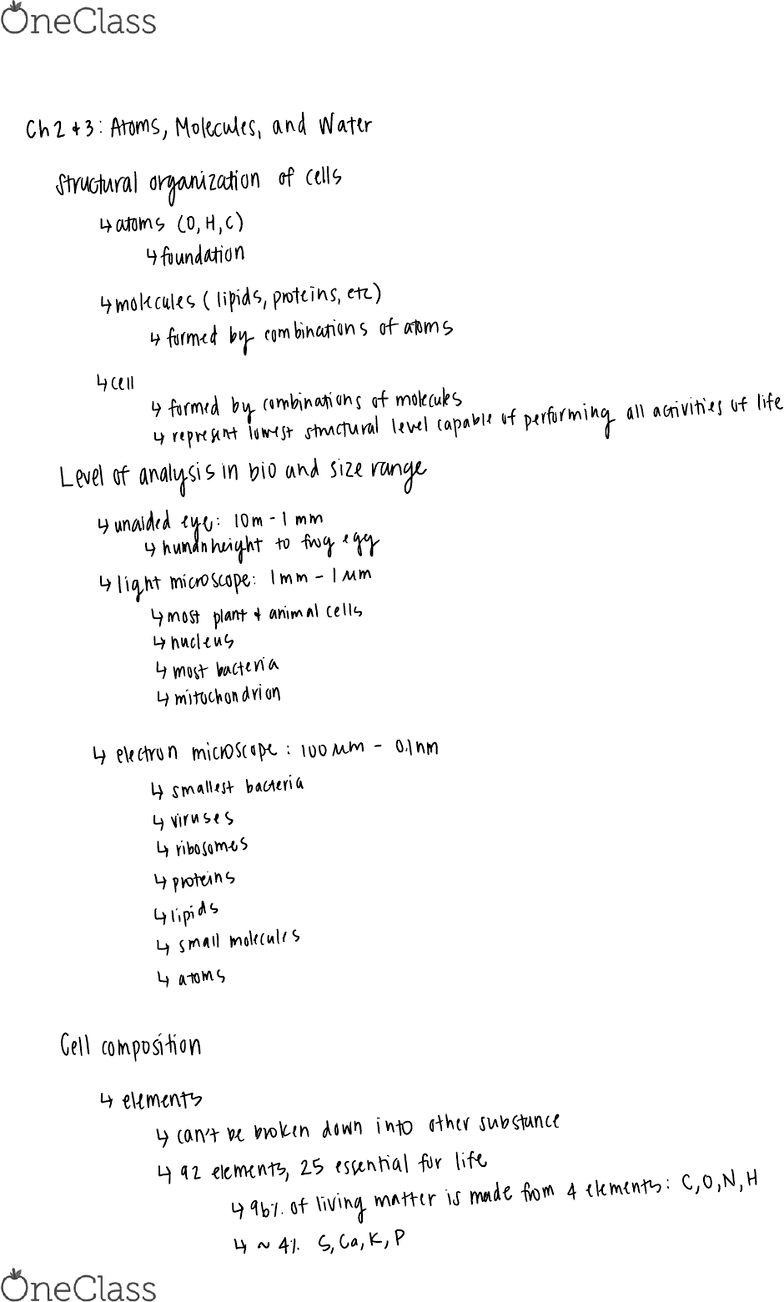 OneClass
Ch 2 + 3: Atoms, Molecules, and Water
Structural organization of cells
↳ atoms (O, H, C)
↳ foundation
↳ molecules (lipids, proteins, etc)
↳ formed by combinations of atoms
↳ cell
↳ formed by combinations of molecules
↳ represent lowest structural level capable of performing all activities of life
Level of analysis in bio and size range
↳ unaided eye: 10m - 1 mm
↳ human height to frog egg
↳ light microscope: 1mm - 1 µm
↳ most plant + animal cells
↳ nucleus
↳ most bacteria
↳ mitochondrion
↳ electron microscope: 100 µm - 0.1nm
↳ smallest bacteria
↳ viruses
↳ ribosomes
↳ proteins
↳ lipids
↳ small molecules
↳ atoms
Cell composition
↳ elements
↳ can't be broken down into other substance
↳ 92 elements, 25 essential for life
↳ 96% of living matter is made from 4 elements: C, O, N, H
↳ ~ 4% S, Ca, K, P
OneClass